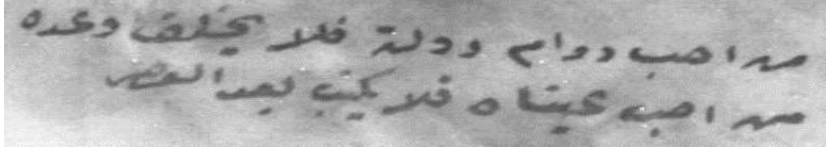 من احب دوام دولته فلا يخلف وعده
من احب عيناه فلا يكتب بعد العصر